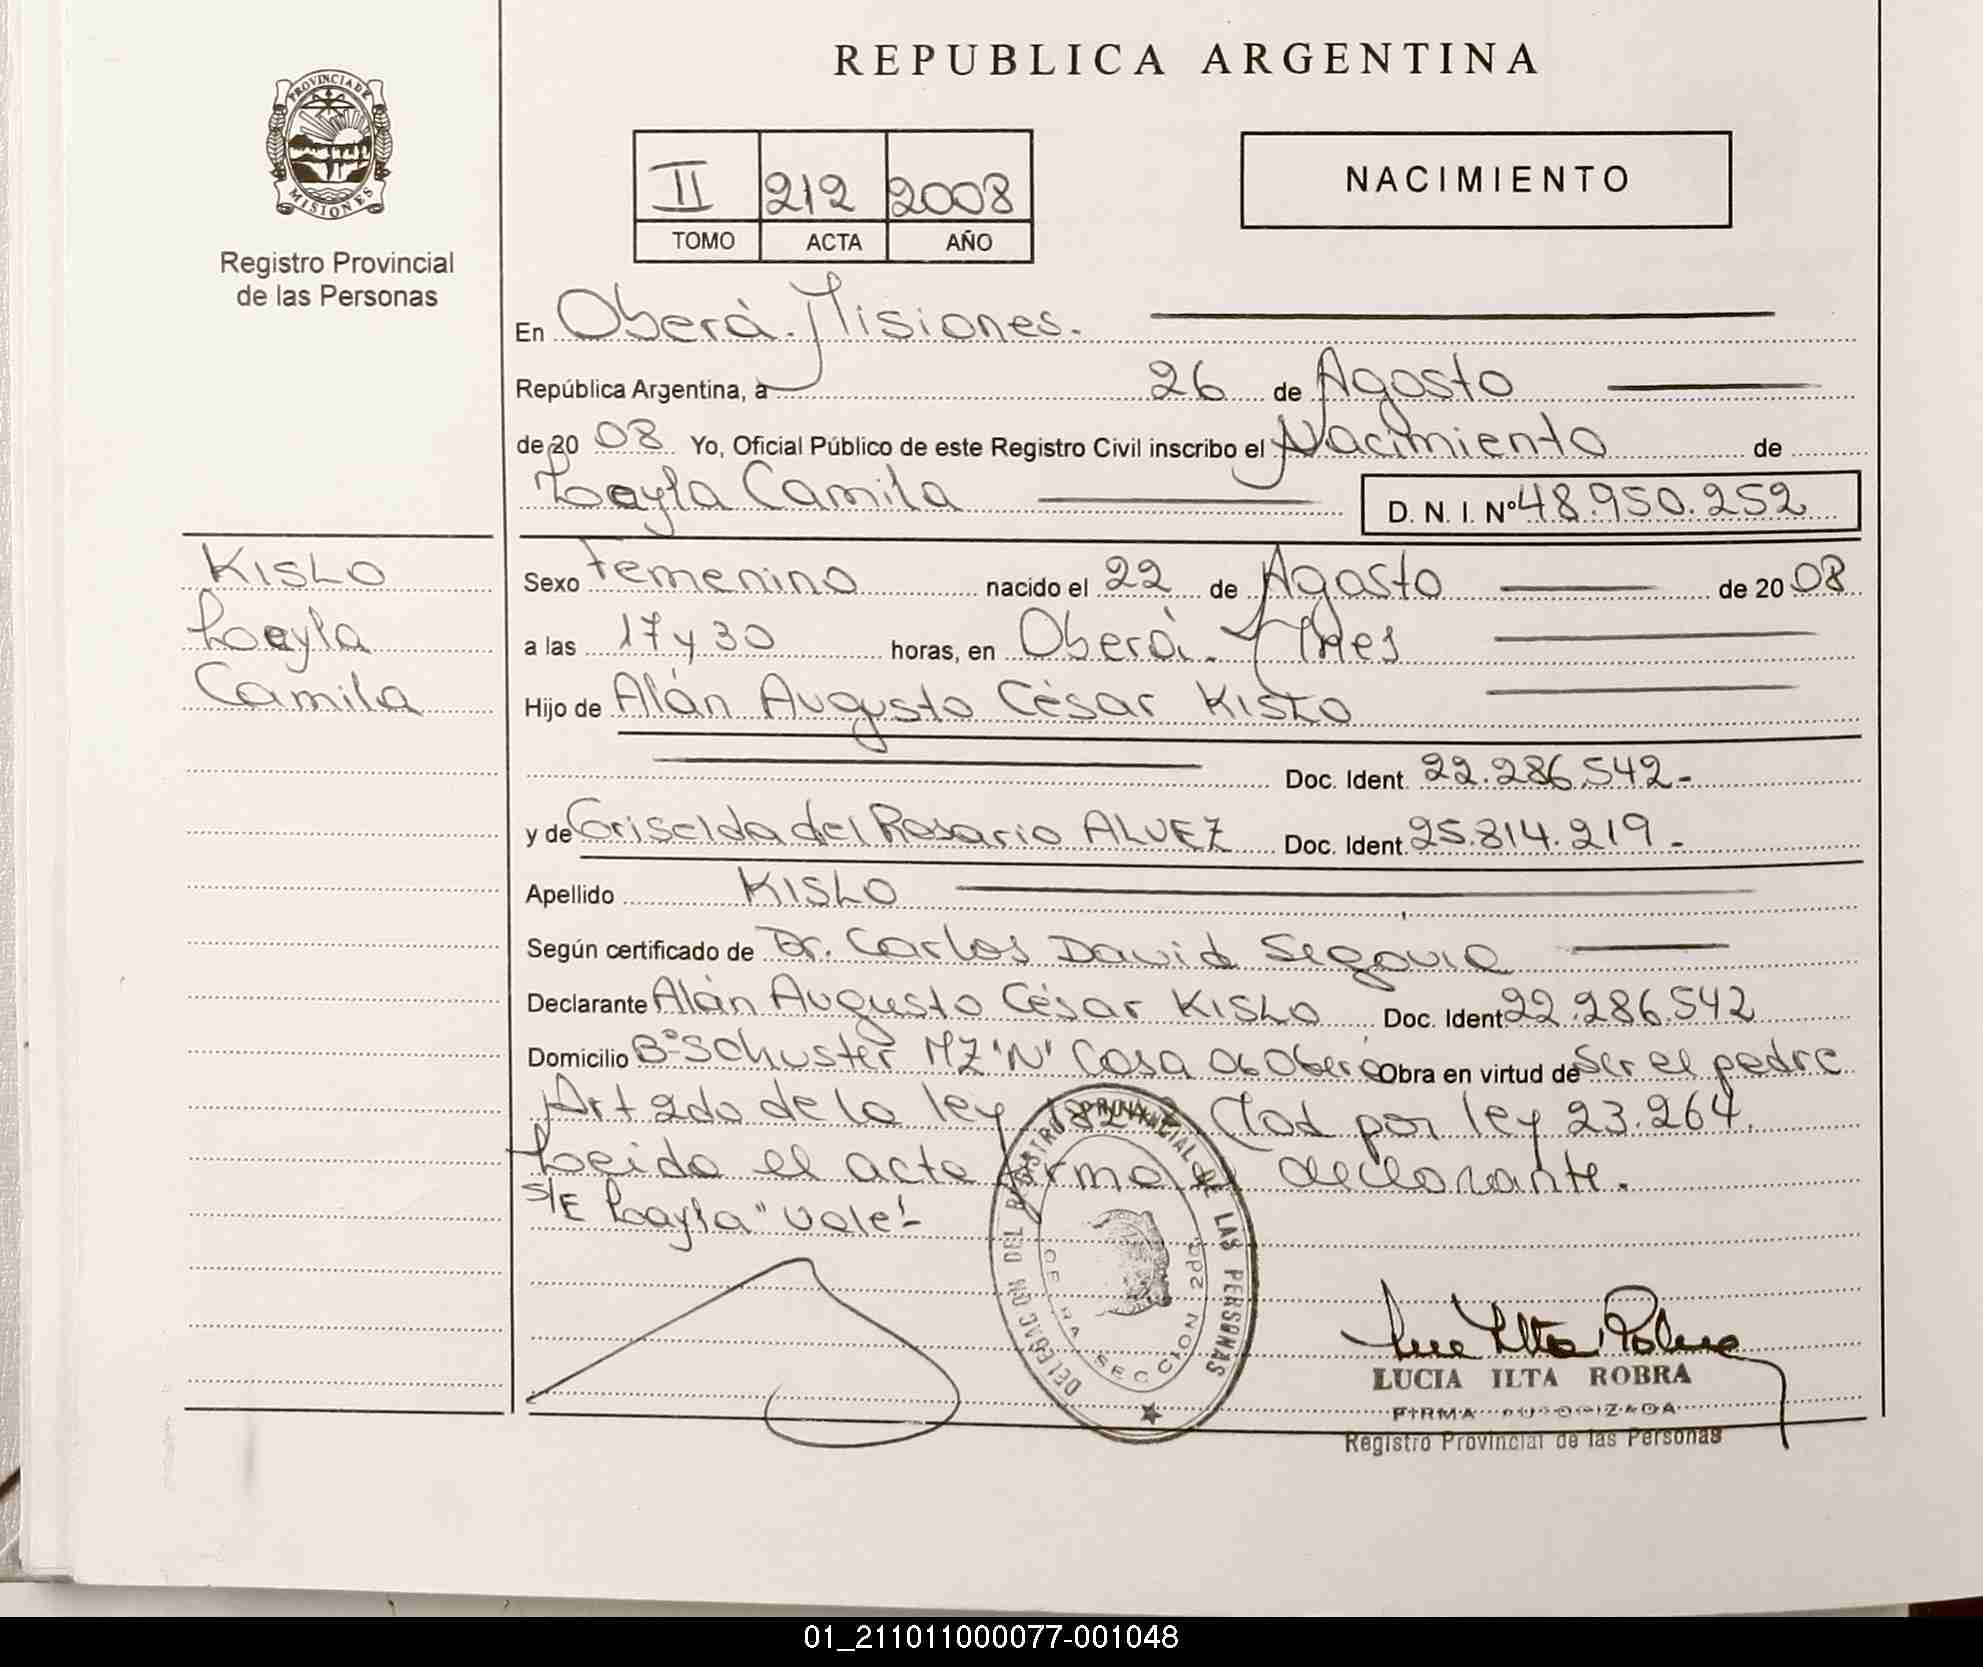 REPUBLICA ARGENTINA
PROVINCIA DE
MISIONES
Registro Provincial
de las Personas
II 212 2008
TOMO ACTA AÑO
NACIMIENTO
En Oberá. Misiones.
República Argentina, a 26 de Agosto
de 20 08 Yo, Oficial Público de este Registro Civil inscribo el Nacimiento de
Layla Camila D. N. I. Nº 48.950.252
KISLO
Layla
Camila
Sexo Femenino nacido el 22 de Agosto de 20 08
a las 17 y 30 horas, en Oberá. Mnes
Hijo de Alán Augusto César KISLO
Doc. Ident. 22.286.542-
y de Griselda del Rosario ALVEZ Doc. Ident. 25.814.219-
Apellido KISLO
Según certificado de Dr. Carlos David Segovia
Declarante Alán Augusto César KISLO Doc. Ident 22.286.542
Domicilio Bº Schuster MZ "N" Casa 06 Oberá Obra en virtud de ser el padre
Art 2do de la ley 18248 Mod por ley 23.264.
Leida el acta firma el declarante.
S/E Layla "vale"-
DELEGACION DEL REGISTRO PROVINCIAL DE LAS PERSONAS
OBERA SECCION 2da
LUCIA ILTA ROBRA
FIRMA AUTORIZADA
Registro Provincial de las Personas
01_211011000077-001048